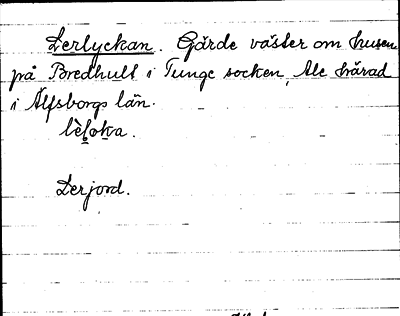 Lerlyckan. Gärde väster om husen
på Bredhult i Tunge socken, Ale härad
i Älfsborgs län.
Lerjord.